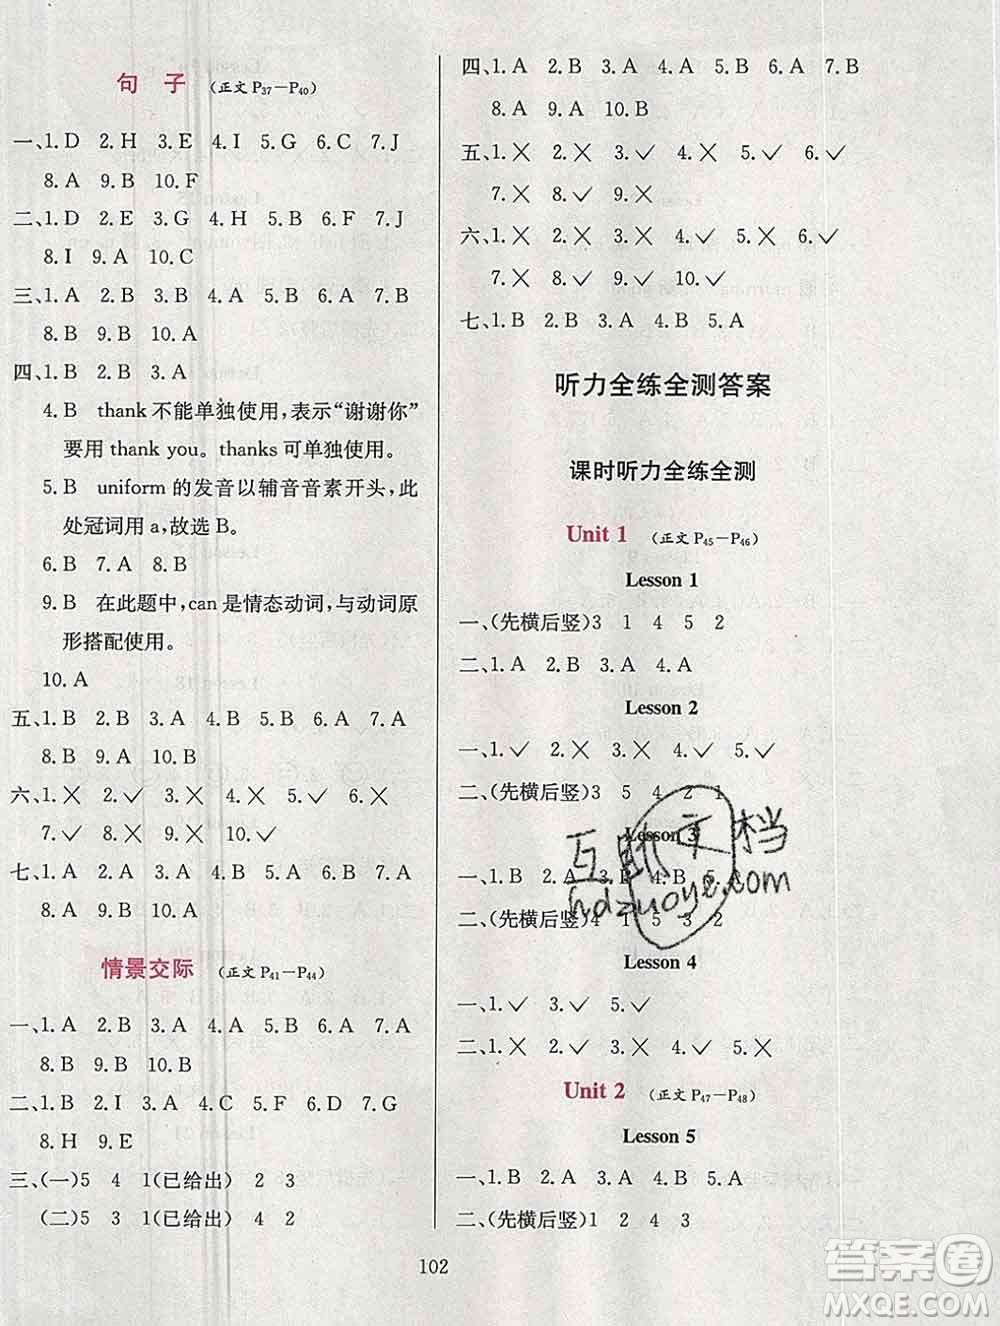 句 子 (正文 P37－P40)
一、1. D 2. H 3. E 4. I 5. G 6. C 7. J
8. A 9. B 10. F
二、1. D 2. E 3. G 4. H 5. B 6. F 7. J
8. I 9. A 10. C
三、1. A 2. B 3. B 4. A 5. B 6. A 7. B
8. B 9. B 10. A
四、1. B 2. B 3. A
4. B thank 不能单独使用,表示“谢谢你”
要用 thank you。thanks 可单独使用。
5. B uniform 的发音以辅音音素开头,此
处冠词用 a,故选 B。
6. B 7. A 8. B
9. B 在此题中,can 是情态动词,与动词原
形搭配使用。
10. A
五、1. B 2. B 3. A 4. B 5. B 6. B 7. A
8. B 9. A 10. B
六、1. ✗ 2. ✓ 3. ✗ 4. ✗ 5. ✓ 6. ✗
7. ✓ 8. ✗ 9. ✗ 10. ✓
七、1. A 2. B 3. A 4. B 5. B 6. B 7. A
8. A 9. B 10. A
情景交际 (正文 P41－P44)
一、1. A 2. B 3. A 4. A 5. B 6. A 7. A
8. B 9. B 10. B
二、1. B 2. I 3. A 4. C 5. F 6. D 7. G
8. H 9. E
三、(一)5 4 1(已给出) 2 3
(二)5 3 1(已给出) 4 2
四、1. A 2. B 3. A 4. B 5. A 6. A 7. B
8. A 9. A 10. B
五、1. ✗ 2. ✗ 3. ✓ 4. ✗ 5. ✓ 6. ✓
7. ✗ 8. ✓ 9. ✗
六、1. ✗ 2. ✓ 3. ✗ 4. ✓ 5. ✗ 6. ✓
7. ✗ 8. ✗ 9. ✓ 10. ✓
七、1. B 2. B 3. B 4. B 5. A
听力全练全测答案
课时听力全练全测
Unit 1 (正文 P45－P46)
Lesson 1
一、(先横后竖)3 1 4 5 2
二、1. A 2. B 3. A 4. A 5. A
Lesson 2
一、1. ✓ 2. ✗ 3. ✗ 4. ✓ 5. ✓
二、(先横后竖)3 5 4 2 1
Lesson 3
一、1. B 2. A 3. B 4. B 5. B
二、(先横后竖)4 1 5 3 2
Lesson 4
一、1. ✓ 3. ✓ 5. ✓
二、1. ✗ 2. ✗ 3. ✓ 4. ✓ 5. ✗
Unit 2 (正文 P47－P48)
Lesson 5
一、1. B 2. A 3. B 4. A 5. A
二、(先横后竖)1 2 4 3
102
互助文档
hdzuoye.com
答案圈
MXQE.COM